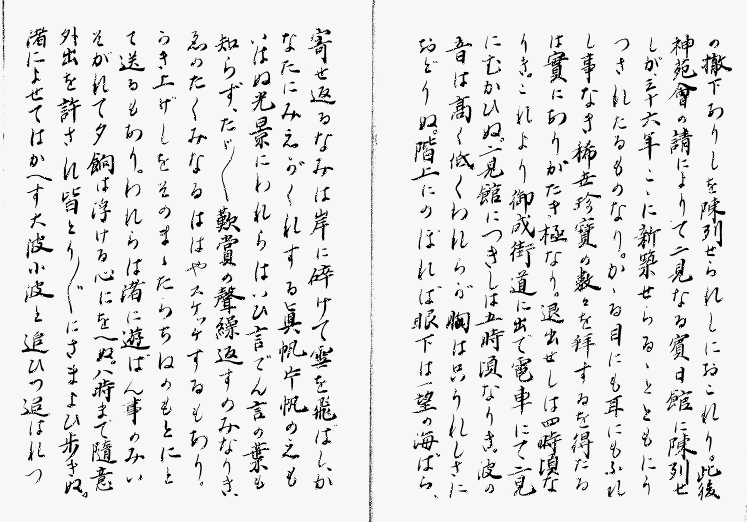 の撤下ありしを陳列せられしにおこれり。此後
神苑會の請によりて二見なる賓日館に陳列せ
しが、三十六年こゝに新築せらるゝとともにう
つされたるものなり。かゝる目にも耳にもふれ
し事なき稀世珍寶の數々を拝するを得たる
は實にありがたき極なり。退出せしは四時頃な
りき。これより御成街道に出で電車にて二見
にむかひぬ。二見館につきしは五時頃なりき。波の
音は高く低くわれらが胸は只うれしさに
おどりぬ。階上にのぼれば眼下は一望の海ばら、
寄せ返るなみは岸に碎けて雪を飛ばし、か
なたにみえがくれする眞帆片帆のえも
いはぬ光景にわれらはいひ言でん言の葉も
知らず、たゞ／＼歎賞の聲繰返すのみなりき、
ゑのたくみなるははやスケッチするもあり。
かき上げしをそのまゝたらちねのもとにと
て送るもあり。われらは渚に遊ばん事のみい
そがれて夕餉は浮ける心にをへぬ。八時まで隨意
外出を許され皆とり／″＼にさまよひ歩きぬ。
渚によせてはかへす大波小波と追ひつ追はれつ